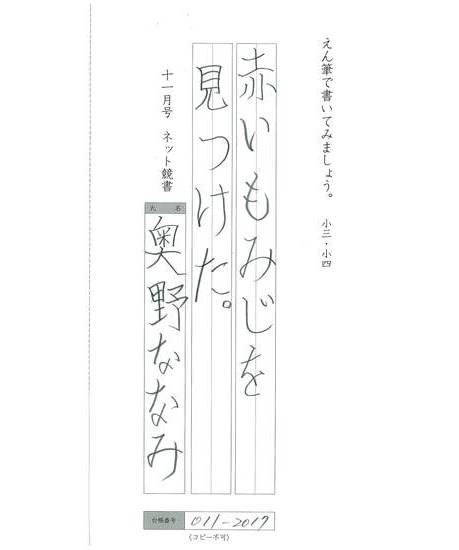 えん筆で書いてみましょう。 小三・小四
赤いもみじを
見つけた。
十一月号 ネット競書
氏名
奥野ななみ
台帳番号 011-2017
(コピー不可)